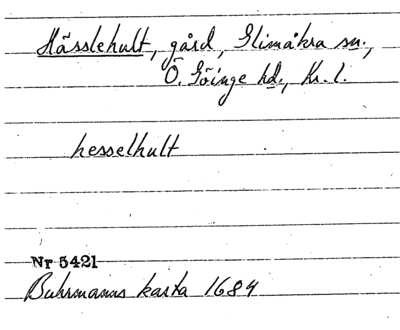 Hässlehult, gård, Glimåkra sn.,
Ö. Göinge hd., Kr. l.
hesselhult
Nr 5421
Buhrmanns karta 1684